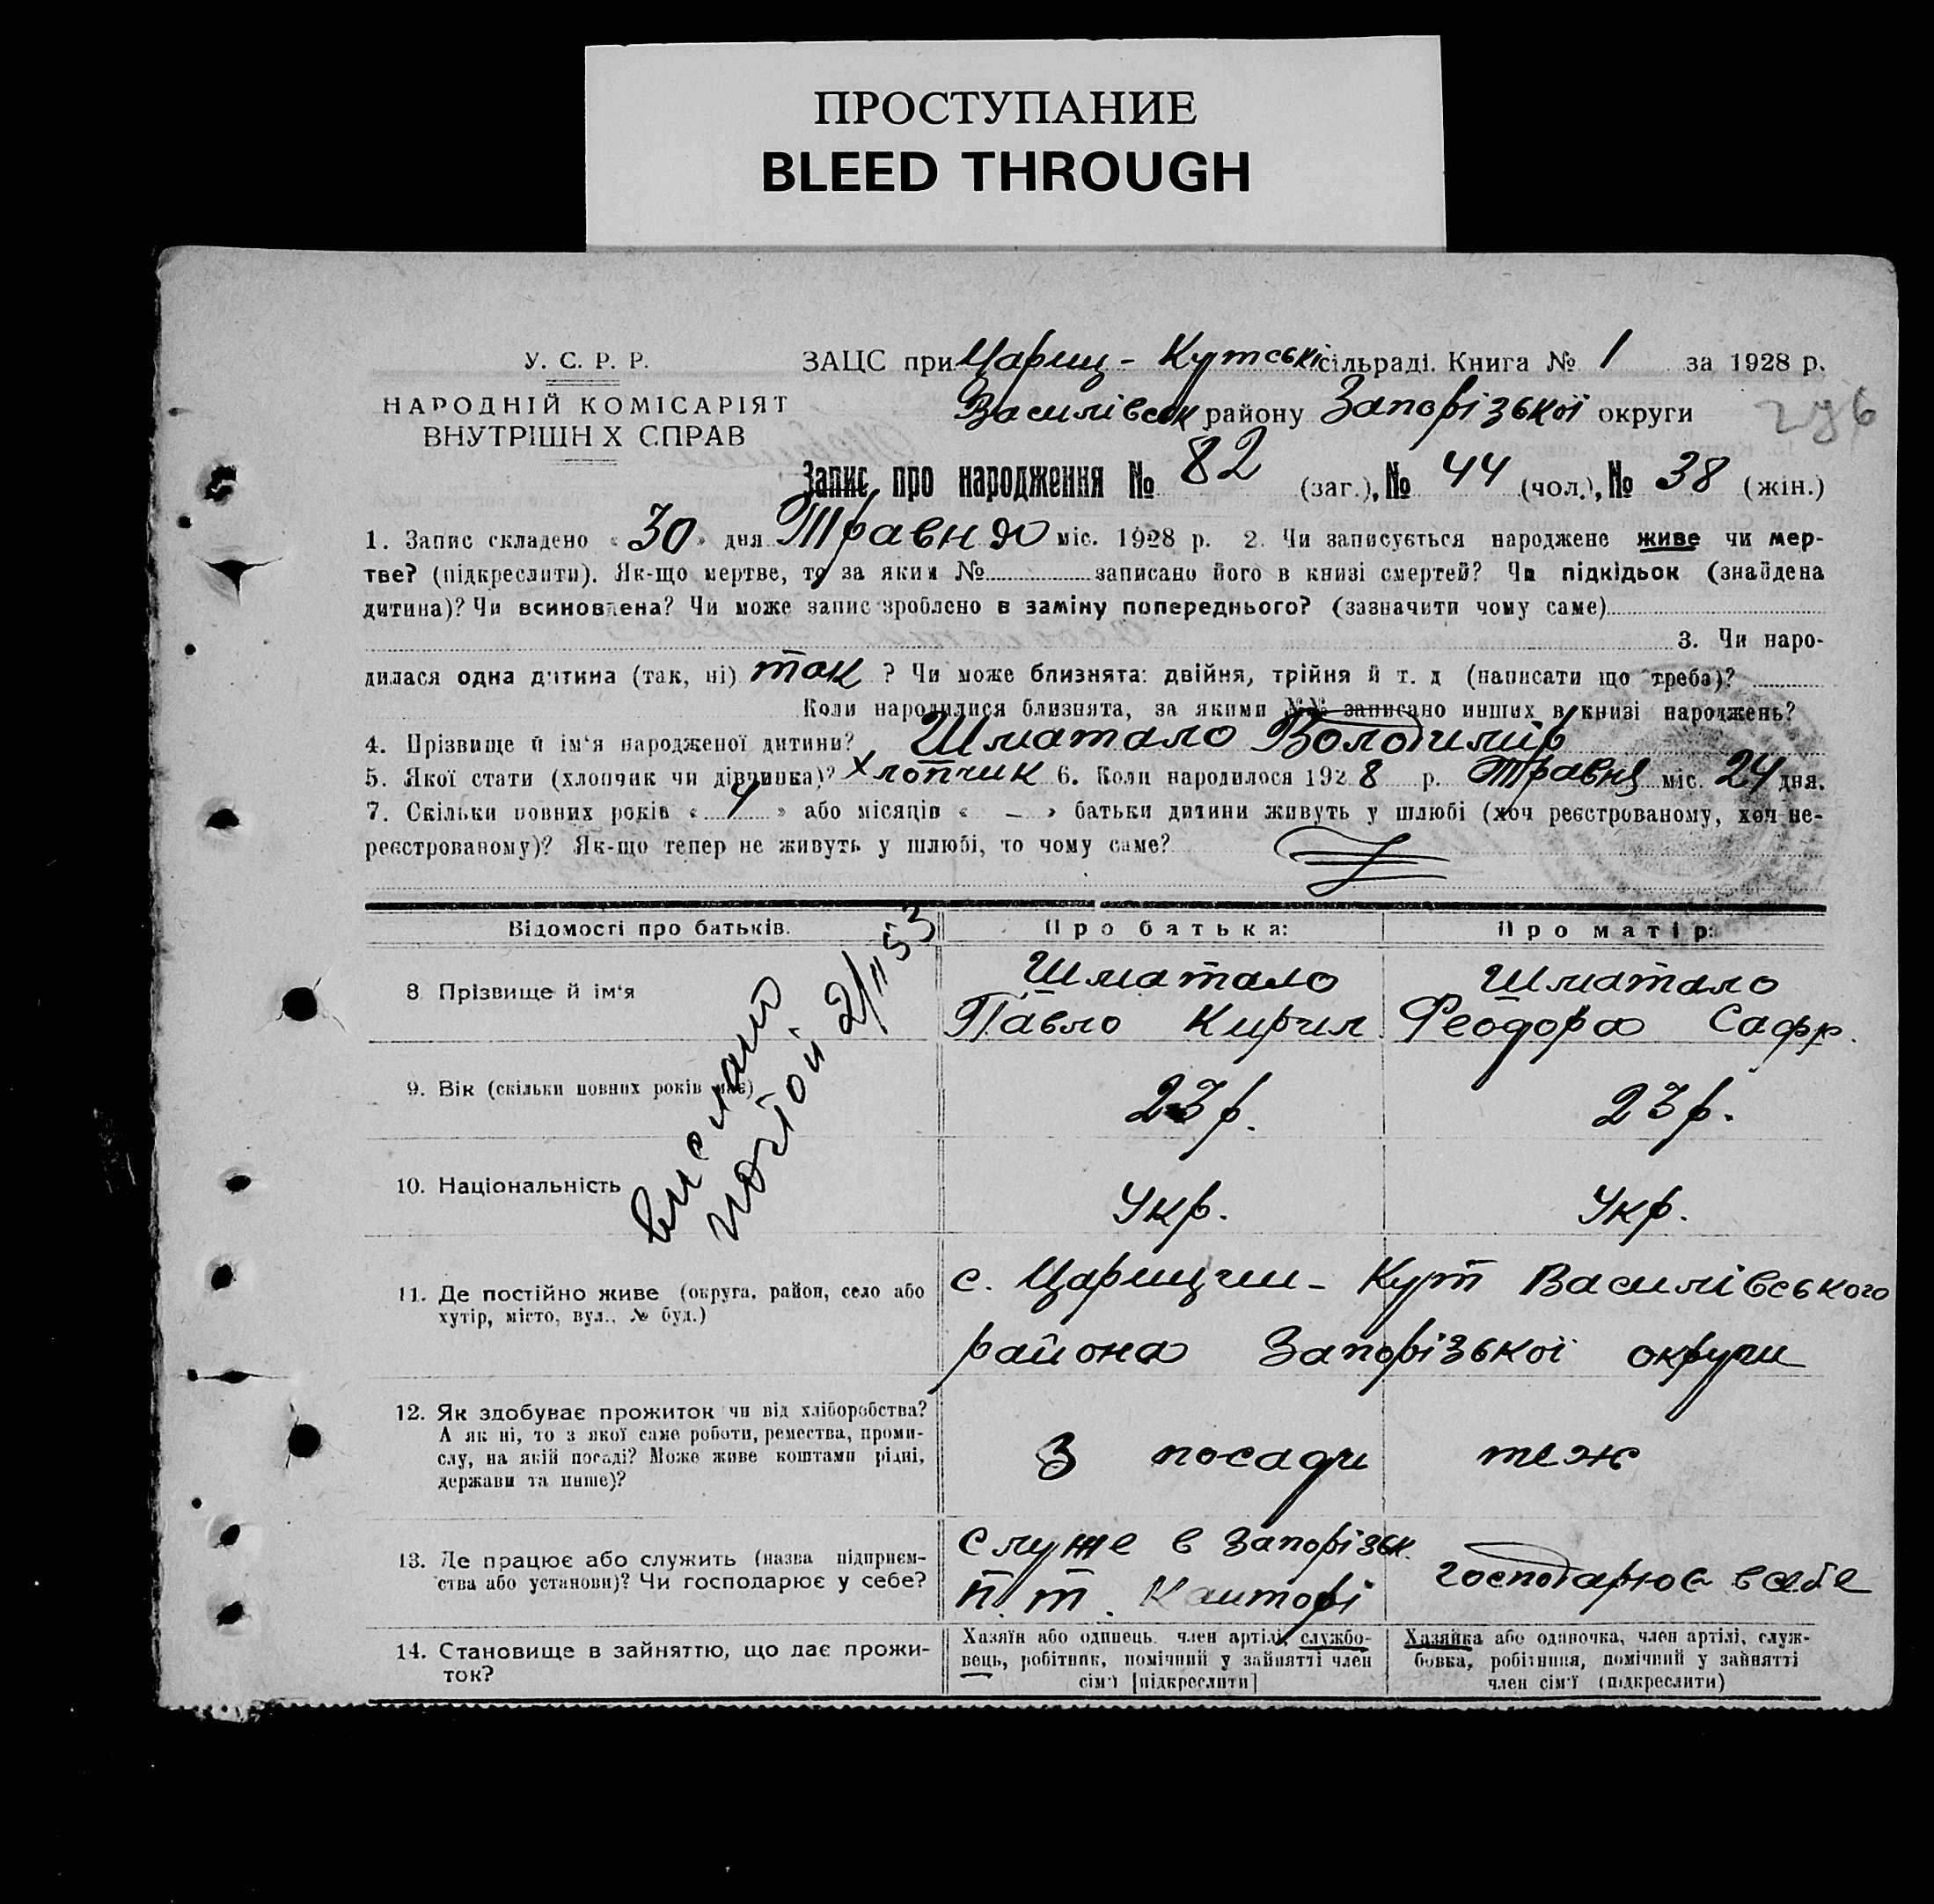 ПРОСТУПАНИЕ
BLEED THROUGH
У. С. Р. Р.
НАРОДНІЙ КОМІСАРІЯТ
ВНУТРІШН Х СПРАВ
ЗАЦС при Цариц - Кутській сільраді. Книга № 1 за 1928 р.
Василівськ району Запорізької округи
296
Запис про народження № 82 (заг.), № 44 (чол.), № 38 (жін.)
1. Запис складено « 30 » дня Травня міс. 1928 р. 2. Чи записується народжене живе чи мер-
тве? (підкреслити). Як-що мертве, то за яким № записано його в книзі смертей? Чи підкідьок (знайдена
дитина)? Чи всиновлена? Чи може запис зроблено в заміну попереднього? (зазначити чому саме)
3. Чи наро-
дилася одна дитина (так, ні) так ? Чи може близнята: двійня, трійня й т. д (написати що треба)?
Коли народилися близнята, за якими №№ записано инших в книзі народжень?
4. Прізвище й ім'я народженої дитини? Шматало Володимір
5. Якої стати (хлопчик чи дівчинка)? хлопчик 6. Коли народилося 1928 р. Травня міс. 24 дня.
7. Скільки повних років « 4 » або місяців « – » батьки дитини живуть у шлюбі (хоч реєстрованому, хоч не-
реєстрованому)? Як-що тепер не живуть у шлюбі, то чому саме?
Відомості про батьків. Про батька: Про матір:
8 Прізвище й ім'я Шматало Шматало
Павло Кирил. Феодора Сафр.
9. Вік (скільки повних років має) 23 р. 23 р.
10. Національність Укр. Укр.
вислано
2/II 53
11. Де постійно живе (округа, район, село або с. Царицин - Кут Василівського
хутір, місто, вул., № буд.)
района Запорізької округи
12. Як здобуває прожиток чи від хліборобства?
А як ні, то з якої саме роботи, ремества, проми- З посади теж
слу, на якій посаді? Може живе коштами рідні,
держави та инше)?
13. Де працює або служить (назва підприєм- служе в Запорізьк. господарює в себе
ства або установи)? Чи господарює у себе? П. Т.Канторі
14. Становище в зайняттю, що дає прожи- Хазяїн або одинець. член артілі, службо- Хазяйка або одиночка, член артілі, служ-
ток? вець, робітник, помічний у зайнятті член бовка, робітниця, помічний у зайнятті
сім'ї [підкреслити] член сім'ї (підкреслити)